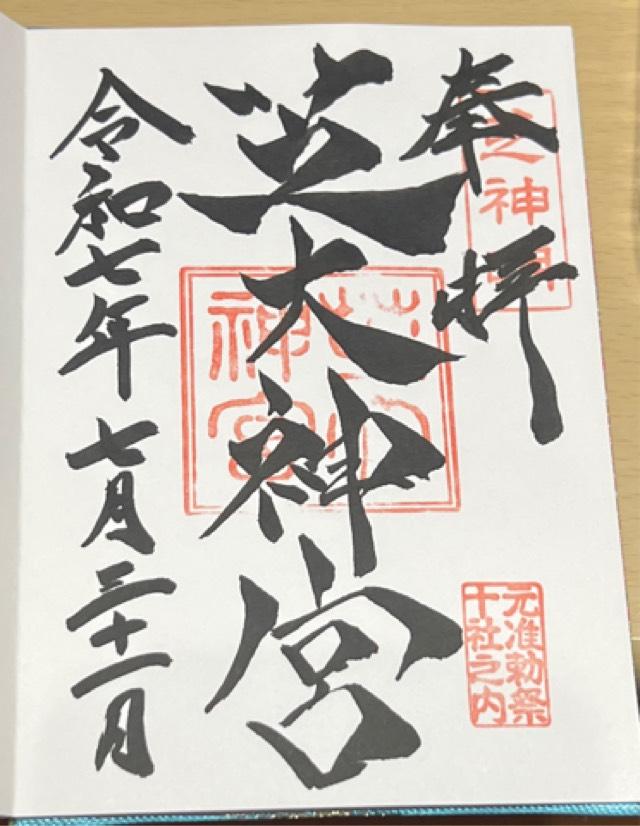 奉拝
芝神明
元准勅祭
十社之内
芝大神宮
芝大
神宮
令和七年七月三十一日